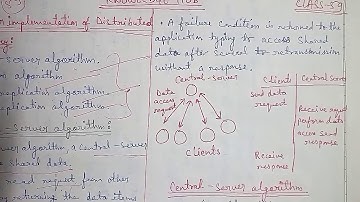 Knowledge Hub
CLASS-59
implementation of Distributed
- server algorithm.
algorithm
replication algorithm
replication algorithm
- Server algorithm:
server algorithm a central-server
shared data.
read request from other
by returning the data items
• A failure condition is returned to the
application trying to access shared
data after several re-transmission
without a response.
Central-Server
Data
access
request
Clients
Client
Central Server
Send data
request
Receive
response
Receive request
perform data
access send
response
Central-Server algorithm